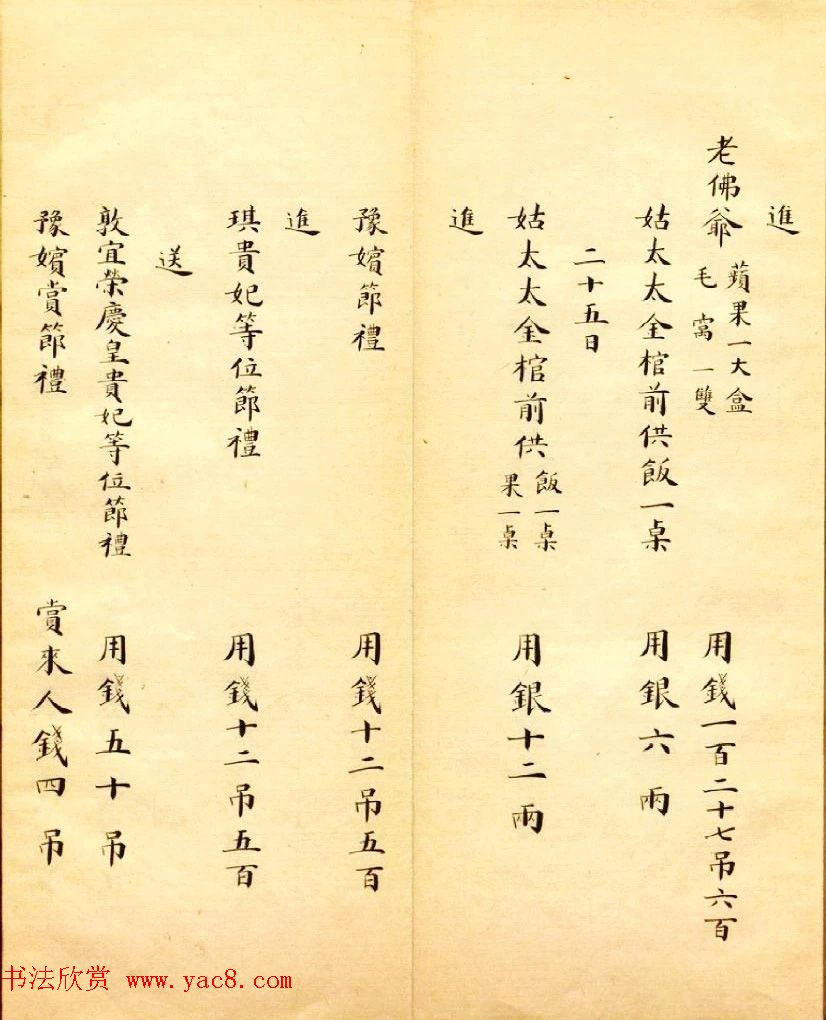 進
老佛爺 蘋果一大盒 毛窩一雙 用錢一百二十七吊六百
姑太太全棺前供飯一桌 用銀六兩
二十五日
姑太太全棺前供 飯一桌 果一桌 用銀十二兩
進
豫嬪節禮 用錢十二吊五百
進
琪貴妃等位節禮 用錢十二吊五百
送
敦宜榮慶皇貴妃等位節禮 用錢五十吊
豫嬪賞節禮 賞來人錢四吊
书法欣赏 www.yac8.com